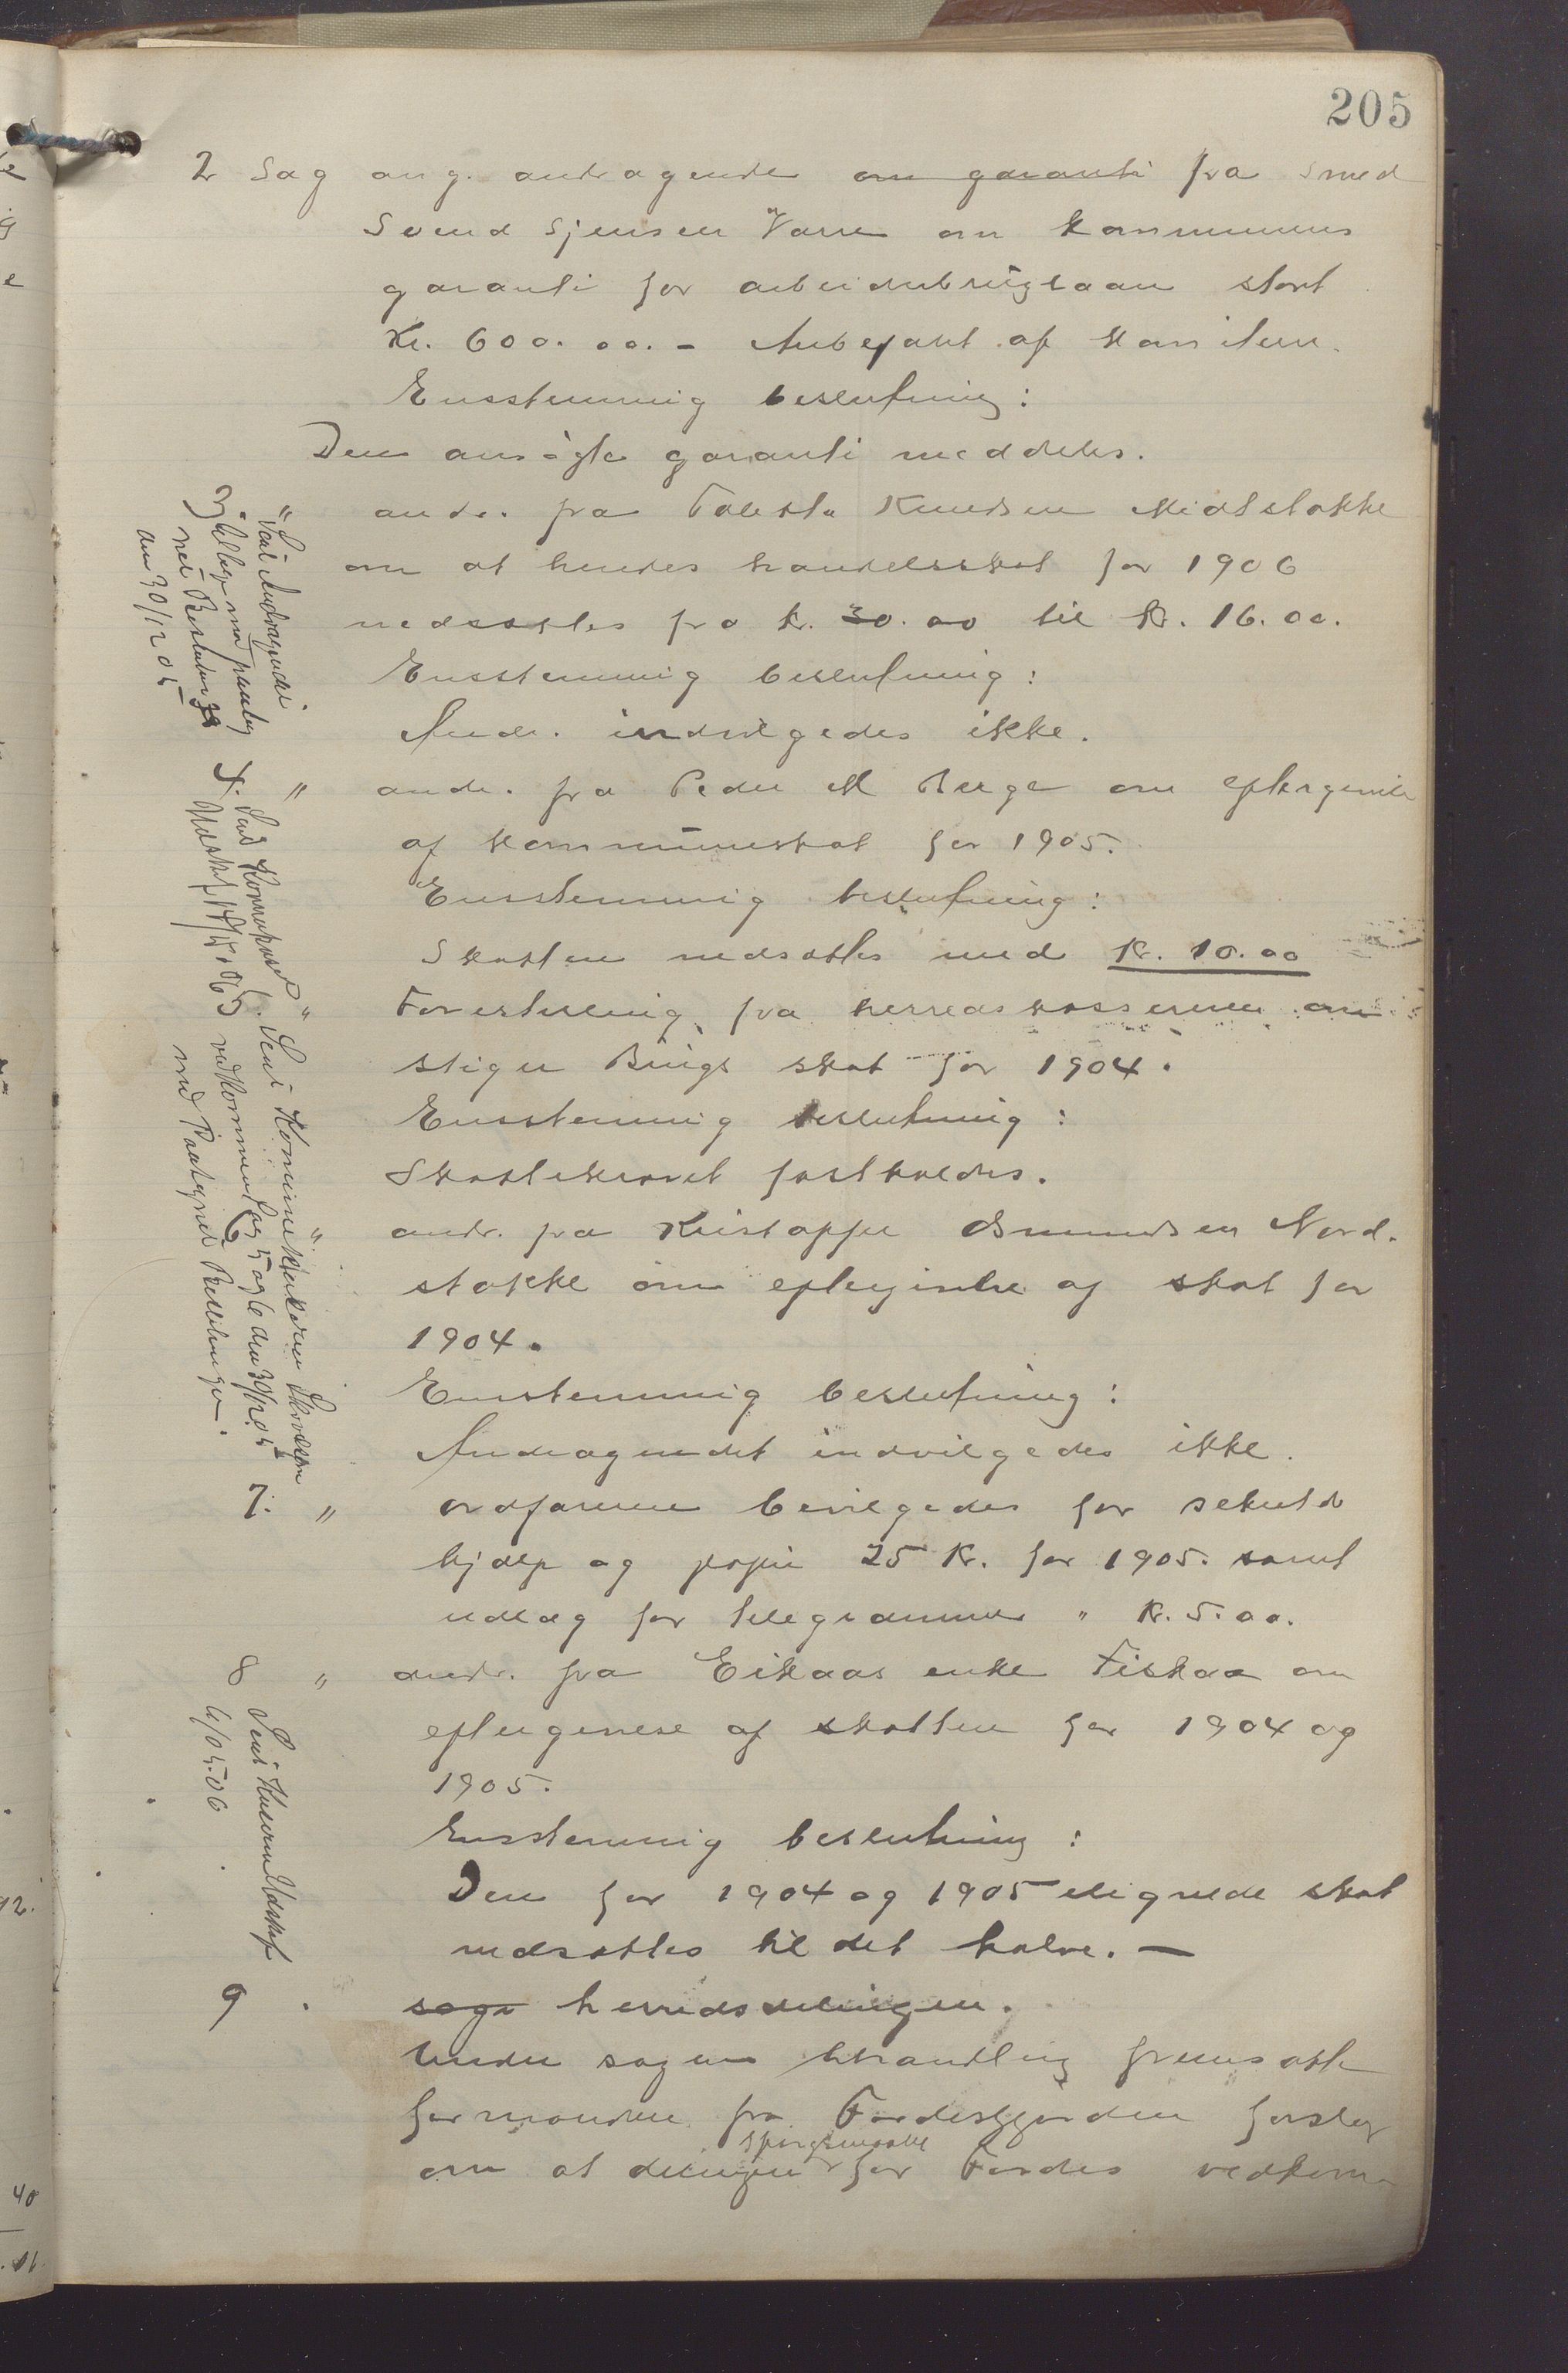 205
2 Sag ang. andragende om garanti fra smed
Svend Sjensen Varne om kommunens
garanti for arbeiderbruglaan stort
Kr. 600.00. - Anbefalt af komiteen.
Enstemmig beslutning:
Den ansøgte garanti meddeles.
3. " andr. fra Knudsen Midtstokke
om at hendes handelsskat for 1906
nedsættes fra kr. 30.00 til kr. 16.00.
Enstemmig beslutning:
Andr. indvilgedes ikke.
4. " andr. fra Peder M Berge om eftergivelse
af kommuneskat for 1905.
Enstemmig beslutning:
Skatten nedsættes med Kr. 10.00
5. " Forestilling fra herredskassereren om
Stigen Brugs skat for 1904.
Enstemmig beslutning:
Skattekravet fastholdes.
6 " andr. fra Kristoffer Osmundsen Nord-
stokke om eftergivelse af skat for
1904.
Enstemmig beslutning:
Andragendet indvilgedes ikke.
7. " ordføreren bevilgedes for
hjælp og papir 25 Kr. for 1905. samt
udlæg for telegrammer " Kr. 5.00.
8 " andr. fra Eikaas enke Fiskaa om
eftergivelse af skatten for 1904 og
1905.
Enstemmig beslutning:
Den for 1904 og 1905 ilignede skat
nedsættes til det halve. —
9 . sage herredsdelingen.
Under sagens behandling fremsatte
formanden fra Fördesfjorden forslag
spørgsmaalet
om at delingen for Fördes vedkom-
Sendt Andragendet
tilbage med paateg
net Beslutning
den 30/12 05
Sendt
Sendt
med Paategnet
Sendt
6/1 06